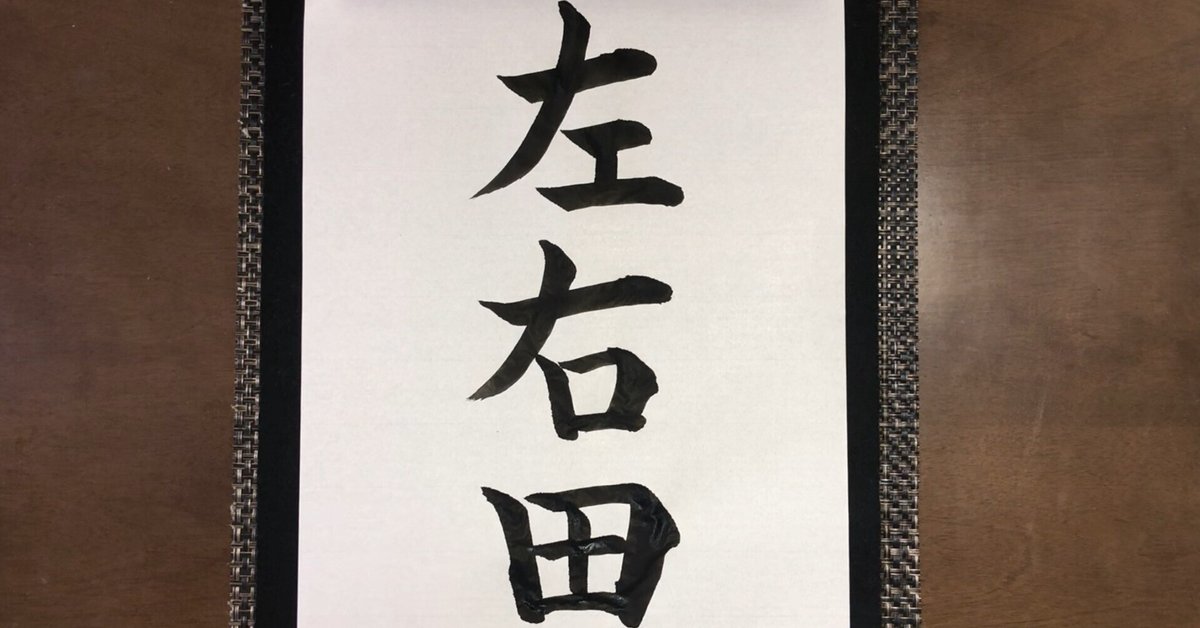 左右田